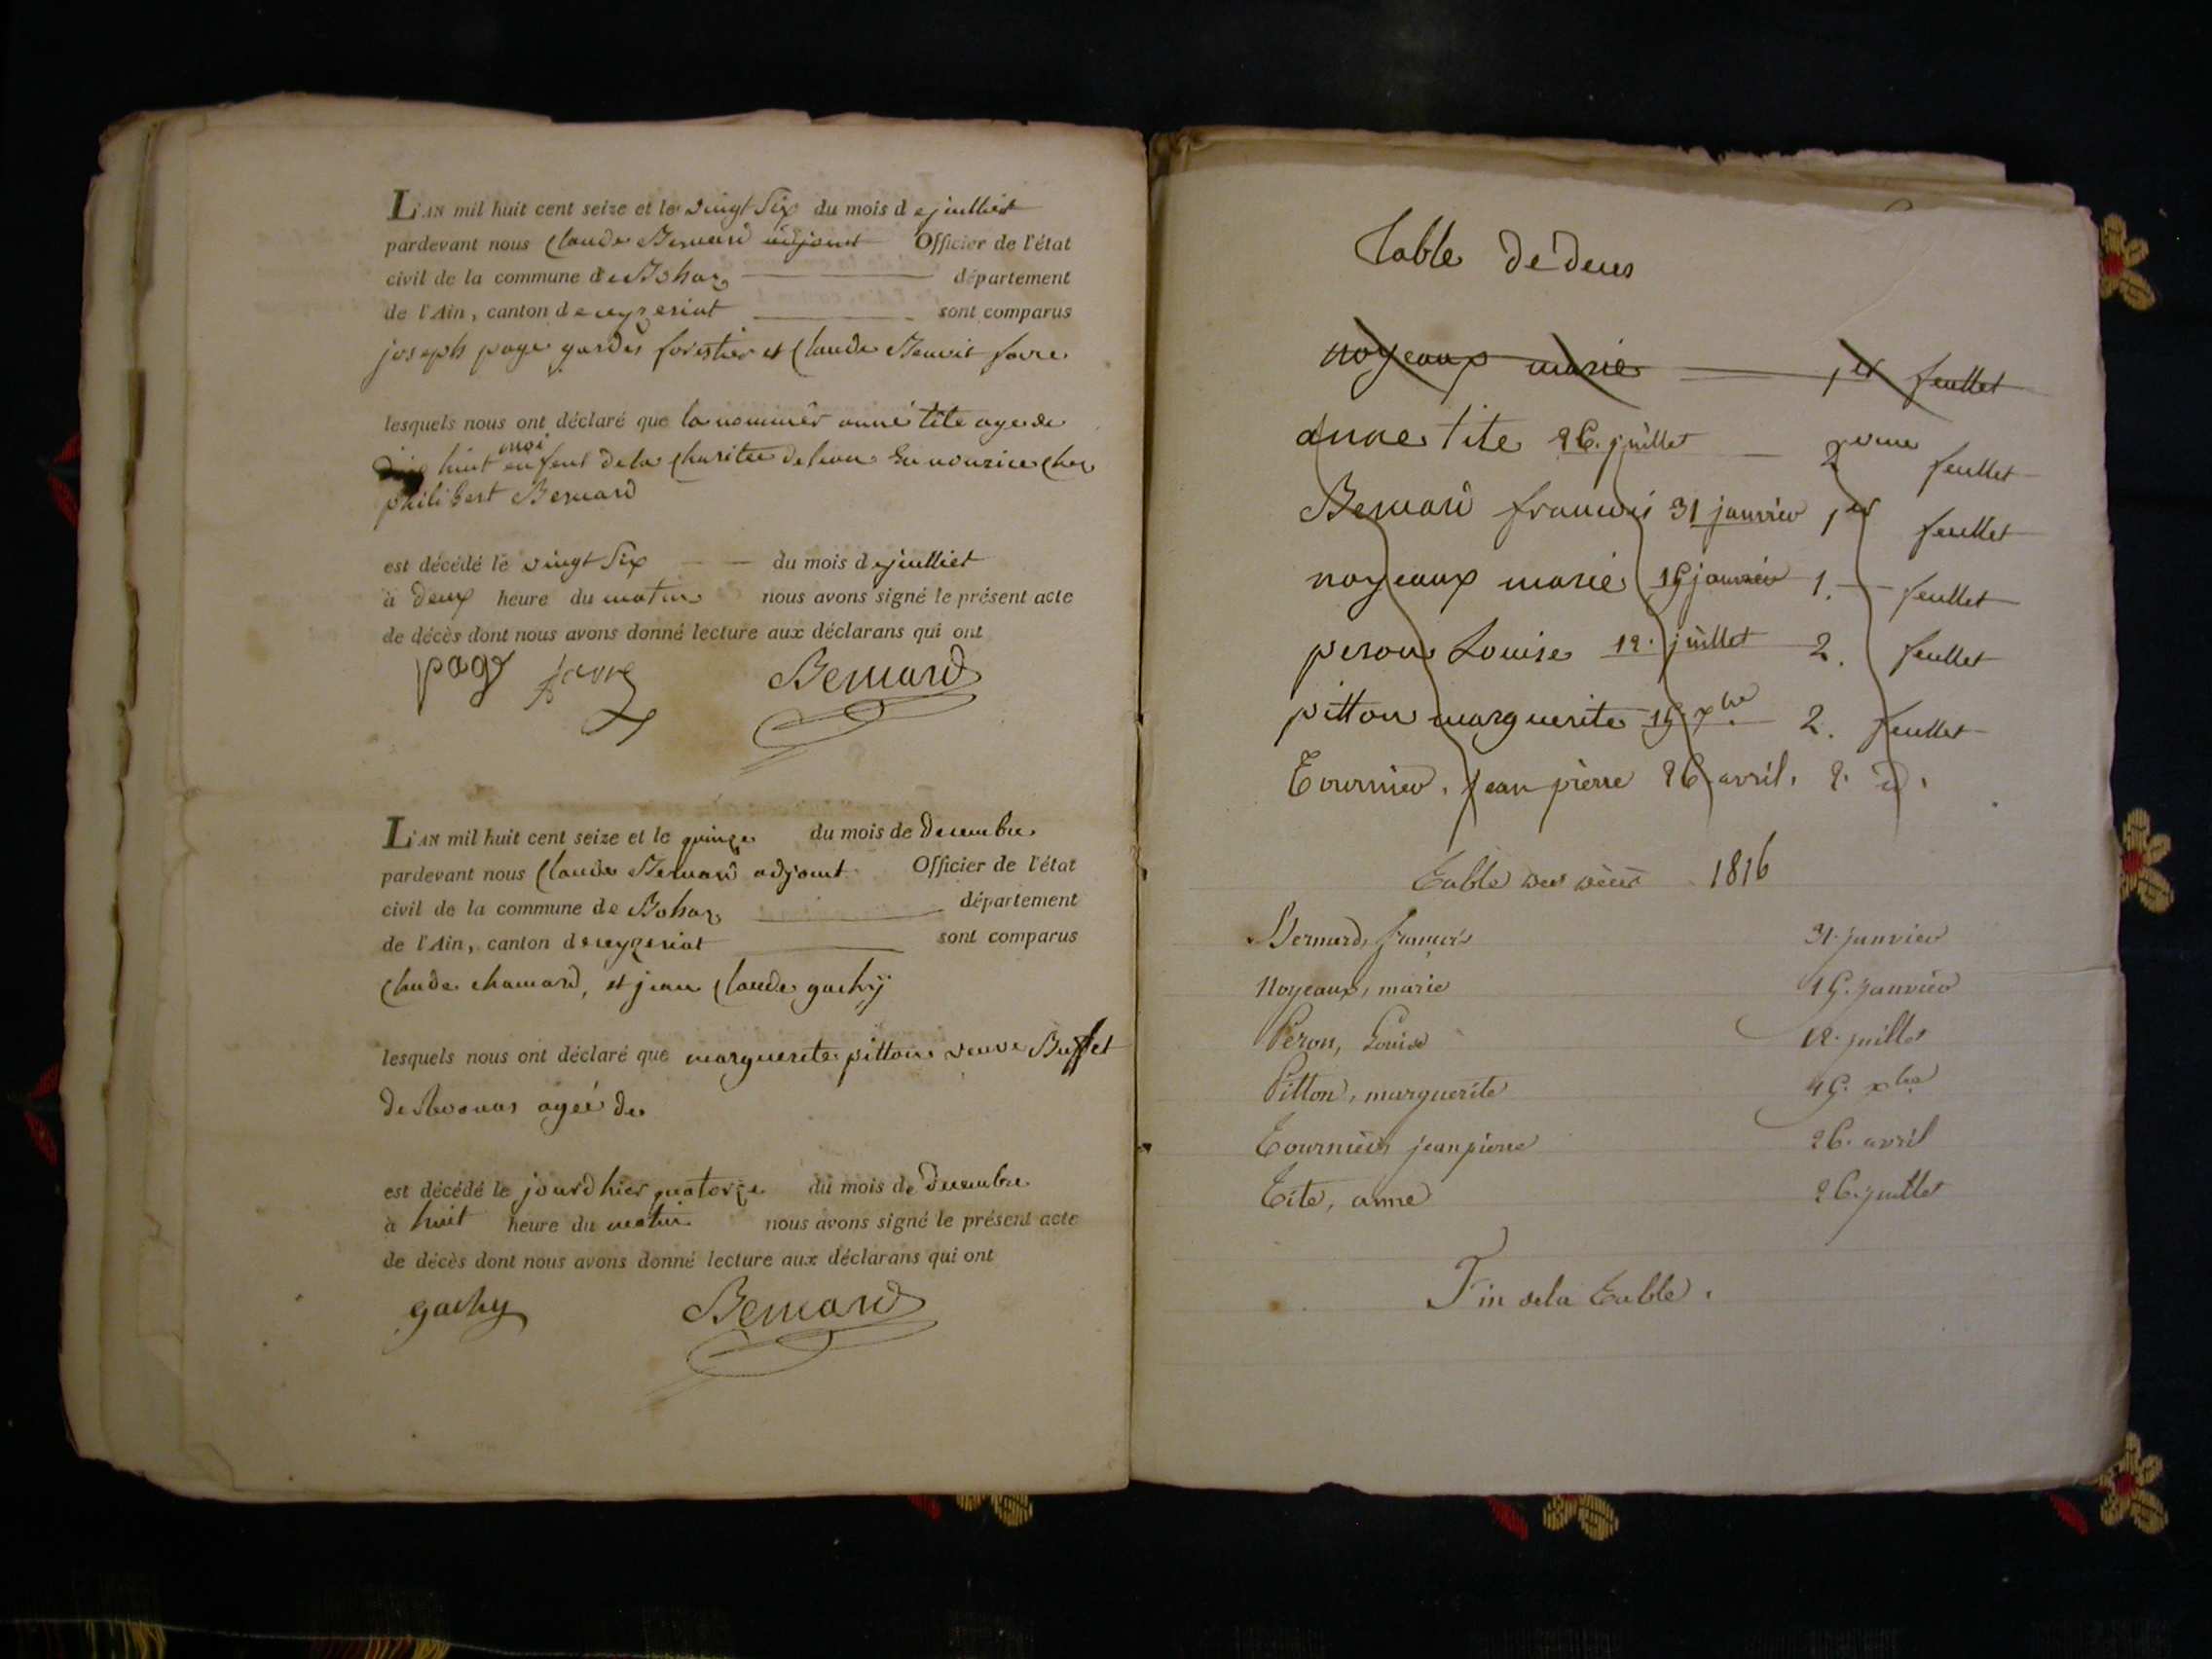 L'AN mil huit cent seize et le vingt Six du mois de juilliet
pardevant nous Claude Bernard adjoint Officier de l'état
civil de la commune de Bohas département
de l'Ain, canton de ceyzeriat sont comparus
joseph page gardes forestier et Claude Benoit favre
lesquels nous ont déclaré que la nommér anné tite age de
huit moi enfent de la Charitee de lion En nourice Chez
philibert Bernard
est décédé le vingt Six du mois de juilliet
à deux heure du matin nous avons signé le présent acte
de décès dont nous avons donné lecture aux déclarans qui ont
page favre Bernard
L'AN mil huit cent seize et le quinze du mois de decembre
pardevant nous Claude Bernard adjoint Officier de l'état
civil de la commune de Bohas département
de l'Ain, canton de ceyzeriat sont comparus
Claude chamard, et jean Claude gachy
lesquels nous ont déclaré que marguerite pitton veuve Buffet
de agée de
est décédé le jourdhier quatorze du mois de decembre
à huit heure du matin nous avons signé le présent acte
de décès dont nous avons donné lecture aux déclarans qui ont
gachy Bernard
Table de deces
noyeaux marie 1er feullet
anne tite 26. juillet 2eme feullet
Bernard francois 31 janvier 1er feullet
noyeaux marie 15 janvier 1. feullet
peron Louise 12. juillet 2. feullet
pitton marguerite 15 xbre 2. feullet
Tournier. jean pierre 26 avril. 2. id.
Table des décès 1816
Bernard, françois 31. janvier
Noyeaux, marie 15. janvier
Peron, Louise 12. juillet
Pitton, marguerite 15. xbre
Tournier, jean pierre 26. avril
Tite, anne 26. juillet
Fin de la Table.